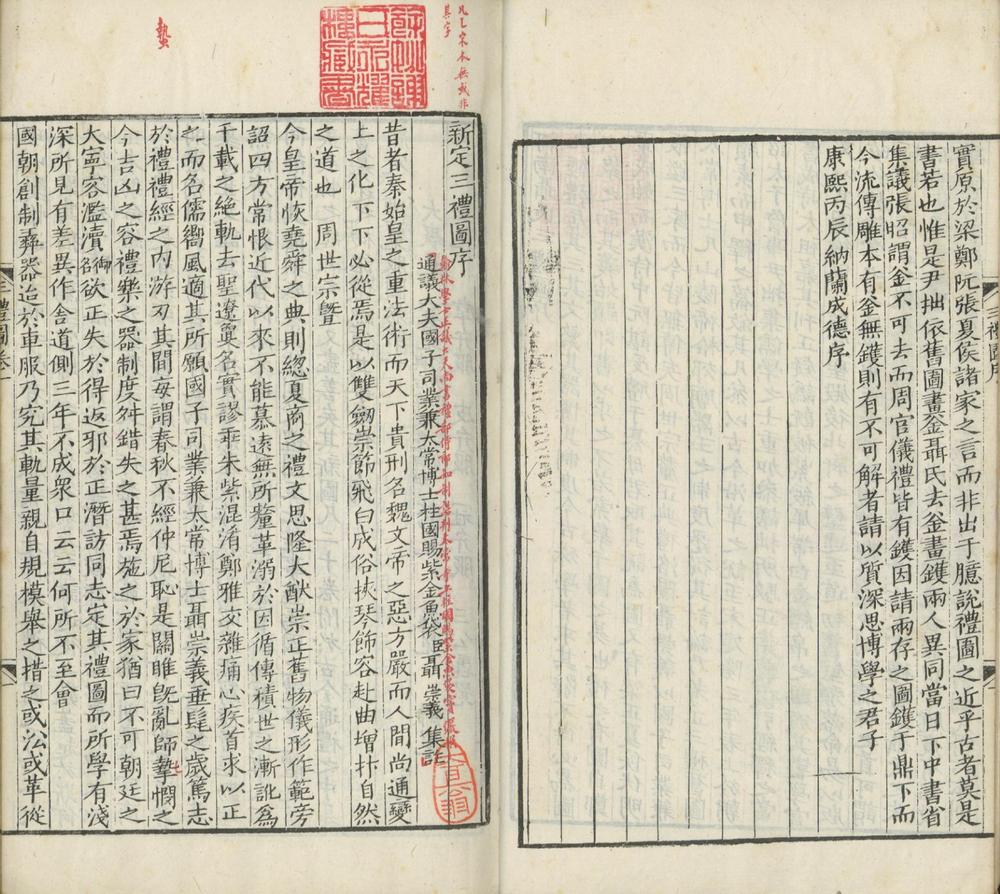 實原於梁鄭阮張夏侯諸家之言而非出于臆說禮圖之近乎古者莫是
書若也惟是尹拙依舊圖畫釜聶氏去釜畫鑊兩人異同當日下中書省
集議張昭謂釜不可去而周官儀禮皆有鑊因請兩存之圖鑊于鼎下而
今流傳雕本有釜無鑊則有不可解者請以質深思博學之君子
康熙丙辰納蘭成德序
三禮圖序
凡乙宋本無或非
其字
新定三禮圖序
通議大夫國子司業兼太常博士柱國賜紫金魚袋臣聶 崇義 集註
昔者秦始皇之重法術而天下貴刑名魏文帝之惡方嚴而人間尚通變
上之化下下必從焉是以雙劒崇節飛白成俗挾琴飾容赴曲增抃自然
之道也 周世宗暨
今皇帝恢堯舜之典則總夏商之禮文思隆大猷崇正舊物儀形作範旁
詔四方常恨近代以來不能慕遠無所釐革溺於因循傳積世之漸訛為
千載之絶軌去聖遼敻名實謬乖朱紫混淆鄭雅交雜痛心疾首求以正
之而名儒嚮風適其所願國子司業兼太常博士聶崇義垂髦之歲篤志
於禮禮經之內游刃其間每謂春秋不經仲尼恥是關睢旣亂師摯憫之
今吉凶之容禮樂之器制度舛錯失之甚焉施之於家猶曰不可朝廷之
大寧容濫瀆御名欲正失於得返邪於正潛訪同志定其禮圖而所學有淺
深所見有差異作舍道側三年不成衆口云云何所不至會
國朝創制彝器迨於車服乃究其軌量親自規模舉之措之或沿或革從
三禮圖卷一